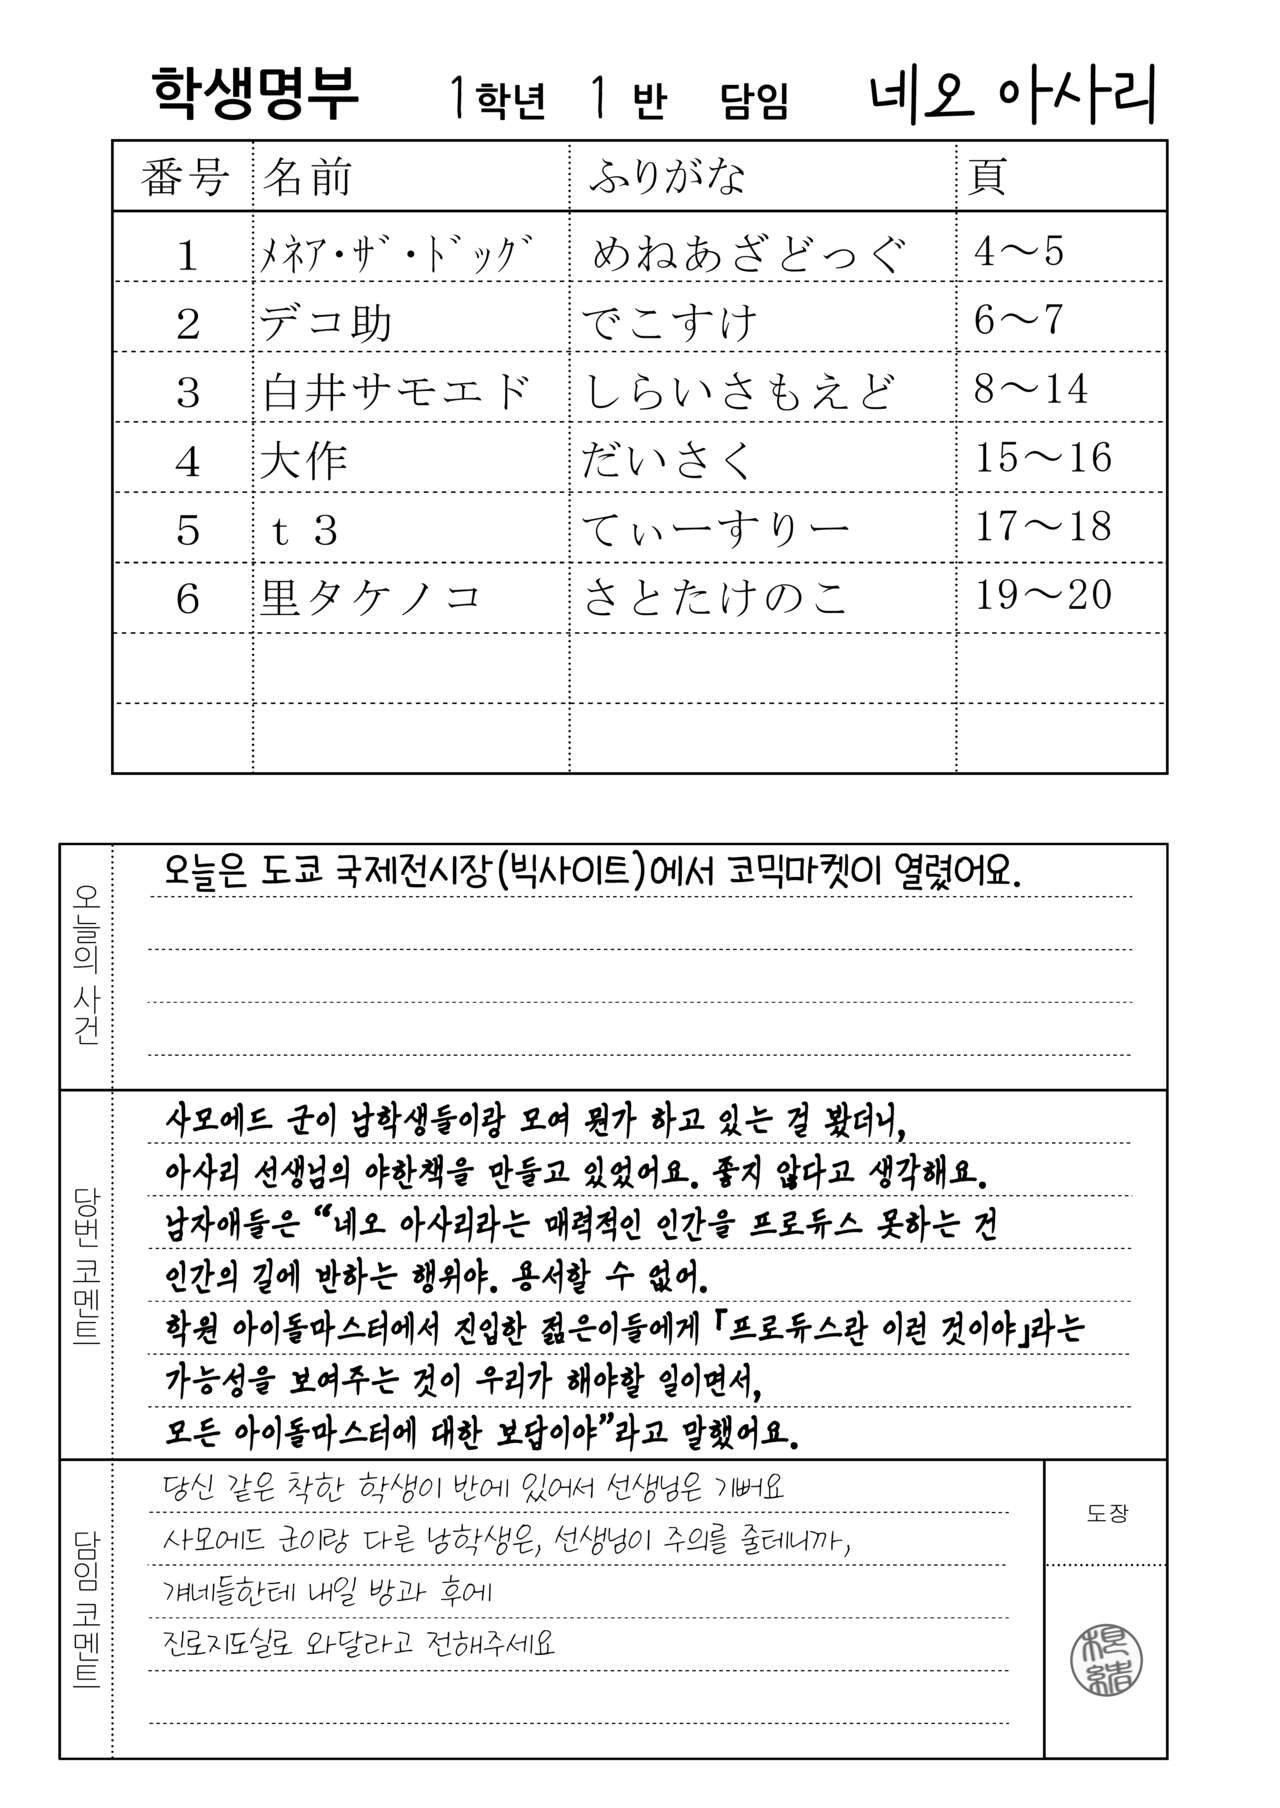 학생명부 1 학년 1 반 담임 네오 아사리
番号 名前 ふりがな 頁
1 ﾒﾈｱ・ｻﾞ・ﾄﾞｯｸﾞ めねあざどっぐ 4～5
2 デコ助 でこすけ 6～7
3 白井サモエド しらいさもえど 8～14
4 大作 だいさく 15～16
5 ｔ３ てぃーすりー 17～18
6 里タケノコ さとたけのこ 19～20
오늘의 사건
오늘은 도쿄 국제전시장(빅사이트)에서 코믹마켓이 열렸어요.
당번 코멘트
사모에드 군이 남학생들이랑 모여 뭔가 하고 있는 걸 봤더니,
아사리 선생님의 야한책을 만들고 있었어요. 좋지 않다고 생각해요.
남자애들은 “네오 아사리라는 매력적인 인간을 프로듀스 못하는 건
인간의 길에 반하는 행위야. 용서할 수 없어.
학원 아이돌마스터에서 진입한 젊은이들에게 「프로듀스란 이런 것이야」라는
가능성을 보여주는 것이 우리가 해야할 일이면서,
모든 아이돌마스터에 대한 보답이야”라고 말했어요.
담임 코멘트
당신 같은 착한 학생이 반에 있어서 선생님은 기뻐요
사모에드 군이랑 다른 남학생은, 선생님이 주의를 줄테니까,
걔네들한테 내일 방과 후에
진로지도실로 와달라고 전해주세요
도장